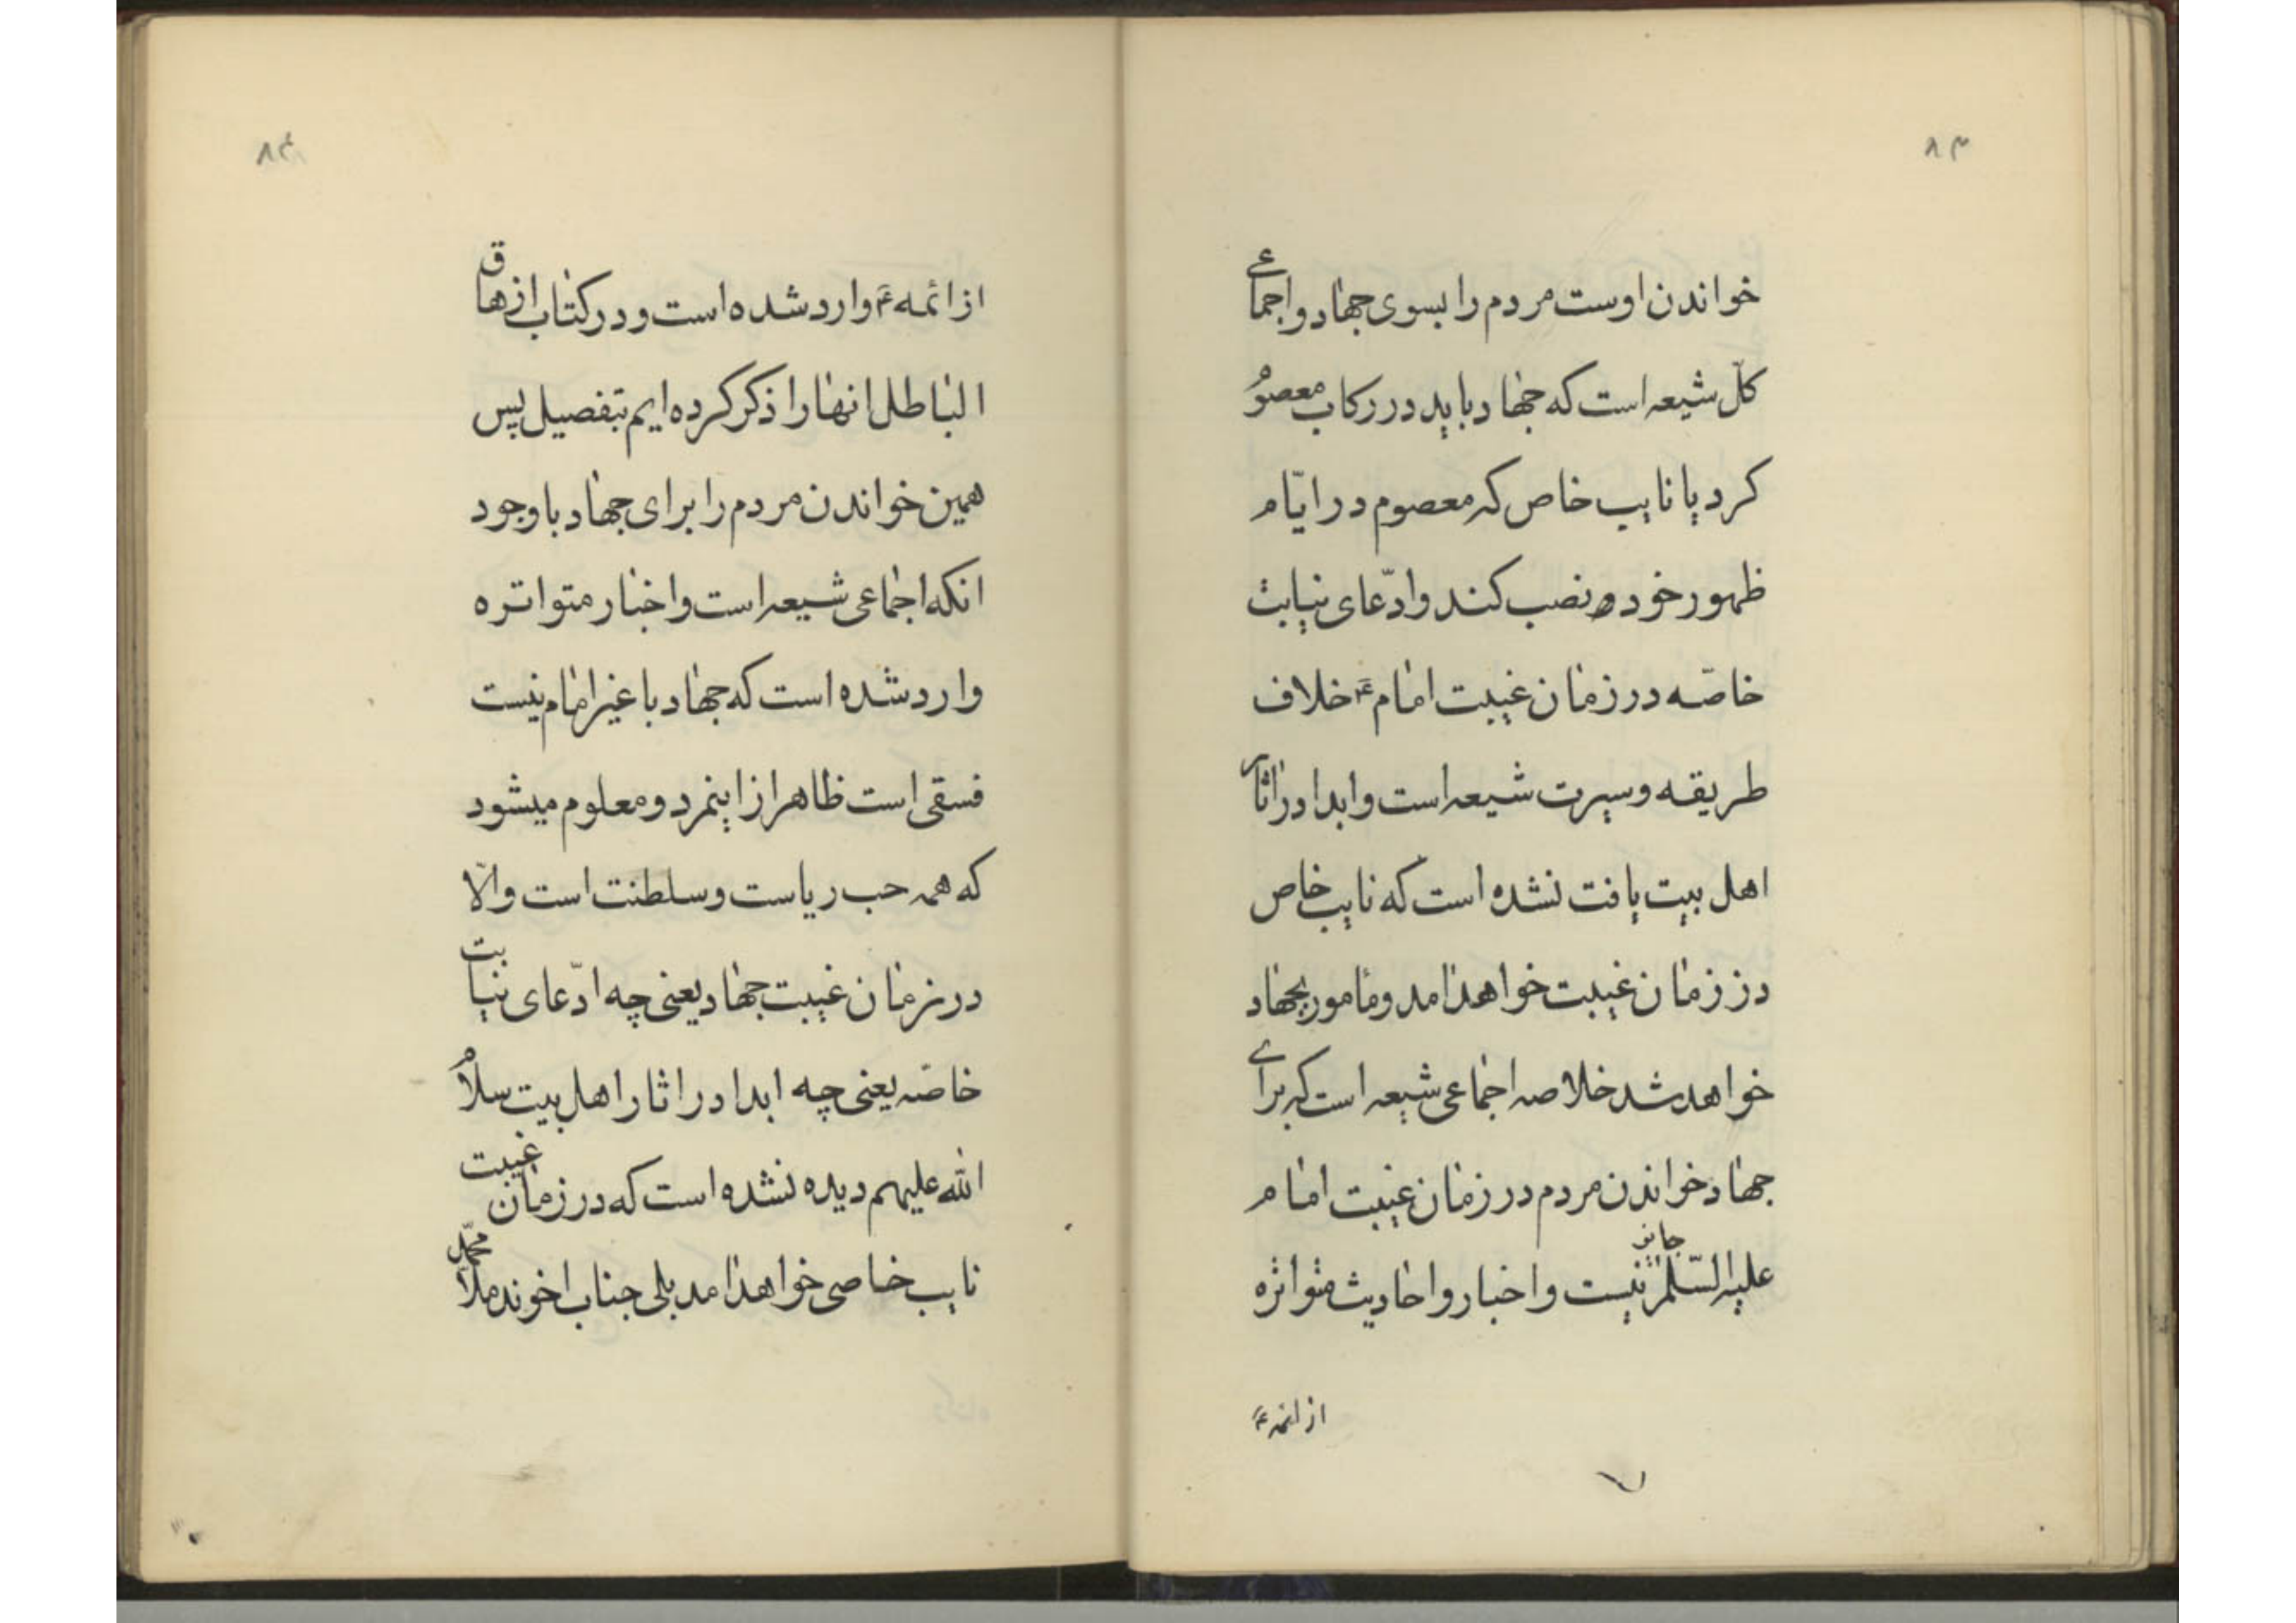 ۸۳
خواندن اوست مردم را بسوی جهاد و اجماعی
کلّ شیعه است که جهاد باید در رکاب معصوم
کرد یا نایب خاص که معصوم در ایّام
ظهور خود نصب کند و ادّعای نیابت
خاصّه در زمان غیبت امام ع خلاف
طریقه و سیرت شیعه است و ابدا در اثار
اهل بیت یافت نشده است که نایب خاص
در زمان غیبت خواهد امد و مامور بجهاد
خواهد شد خلاصه اجماعی شیعه است که برای
جهاد خواندن مردم در زمان غیبت امام
علیه السّلم جایز نیست و اخبار و احادیث متواتره
از ائمه ع
۸۴
از ائمه ع وارد شده است و در کتاب ازهاق
الباطل انها را ذکر کرده ایم بتفصیل پس
همین خواندن مردم را برای جهاد با وجود
انکه اجماعی شیعه است و اخبار متواتره
وارد شده است که جهاد با غیر امام نیست
فسقی است ظاهر از اینمرد و معلوم میشود
که همه حب ریاست و سلطنت است و الّا
در زمان غیبت جهاد یعنی چه ادّعای نیابت
خاصّه یعنی چه ابدا در اثار اهل بیت سلام
الله علیهم دیده نشده است که در زمان غیبت
نایب خاصی خواهد امد بلی جناب اخوند ملا محمّد